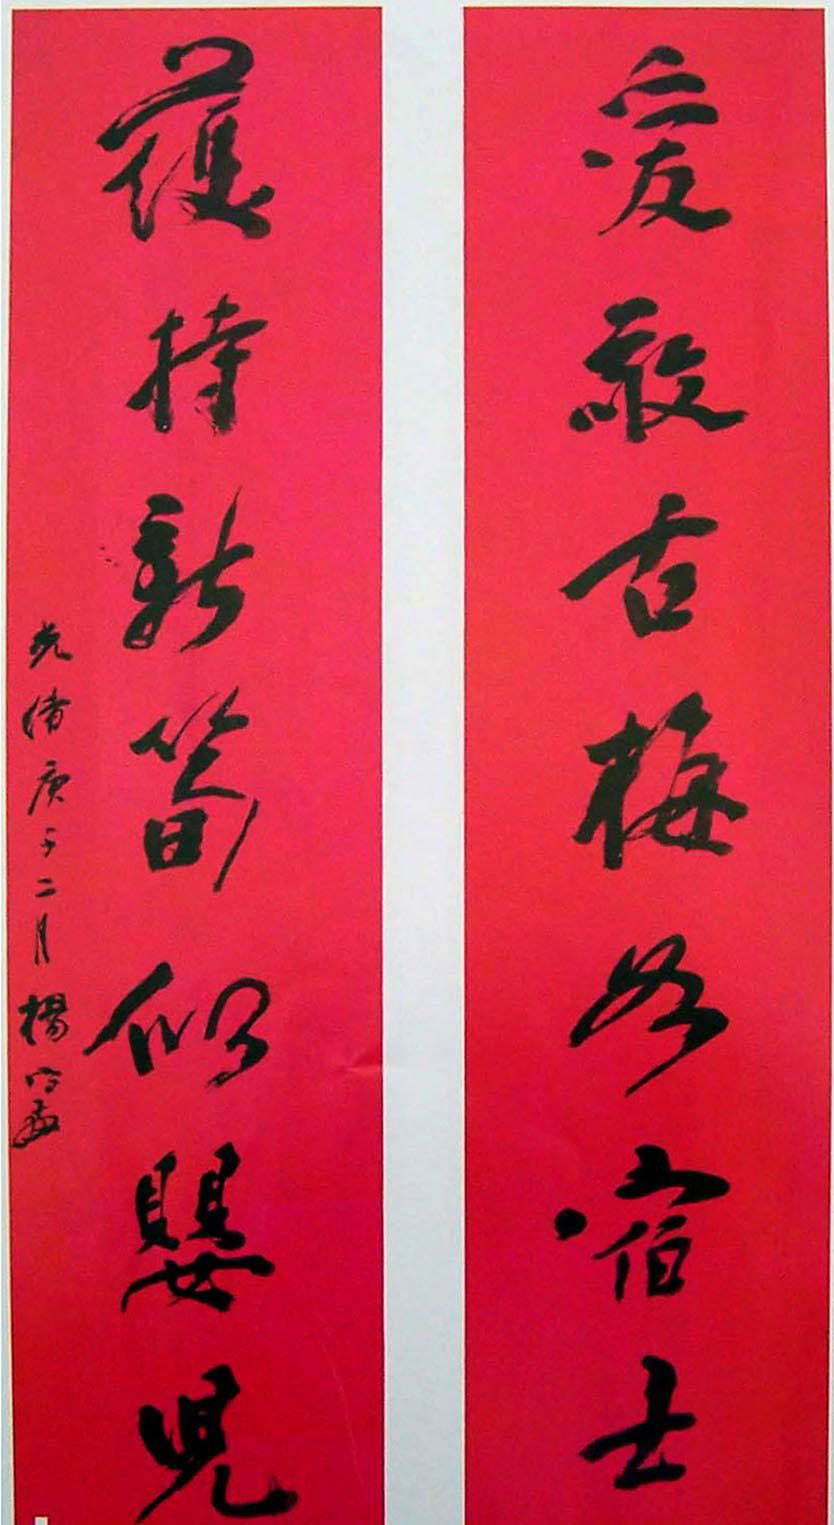 愛敬古梅如宿士
護持新筍似嬰兒
光緒庚子二月楊守敬